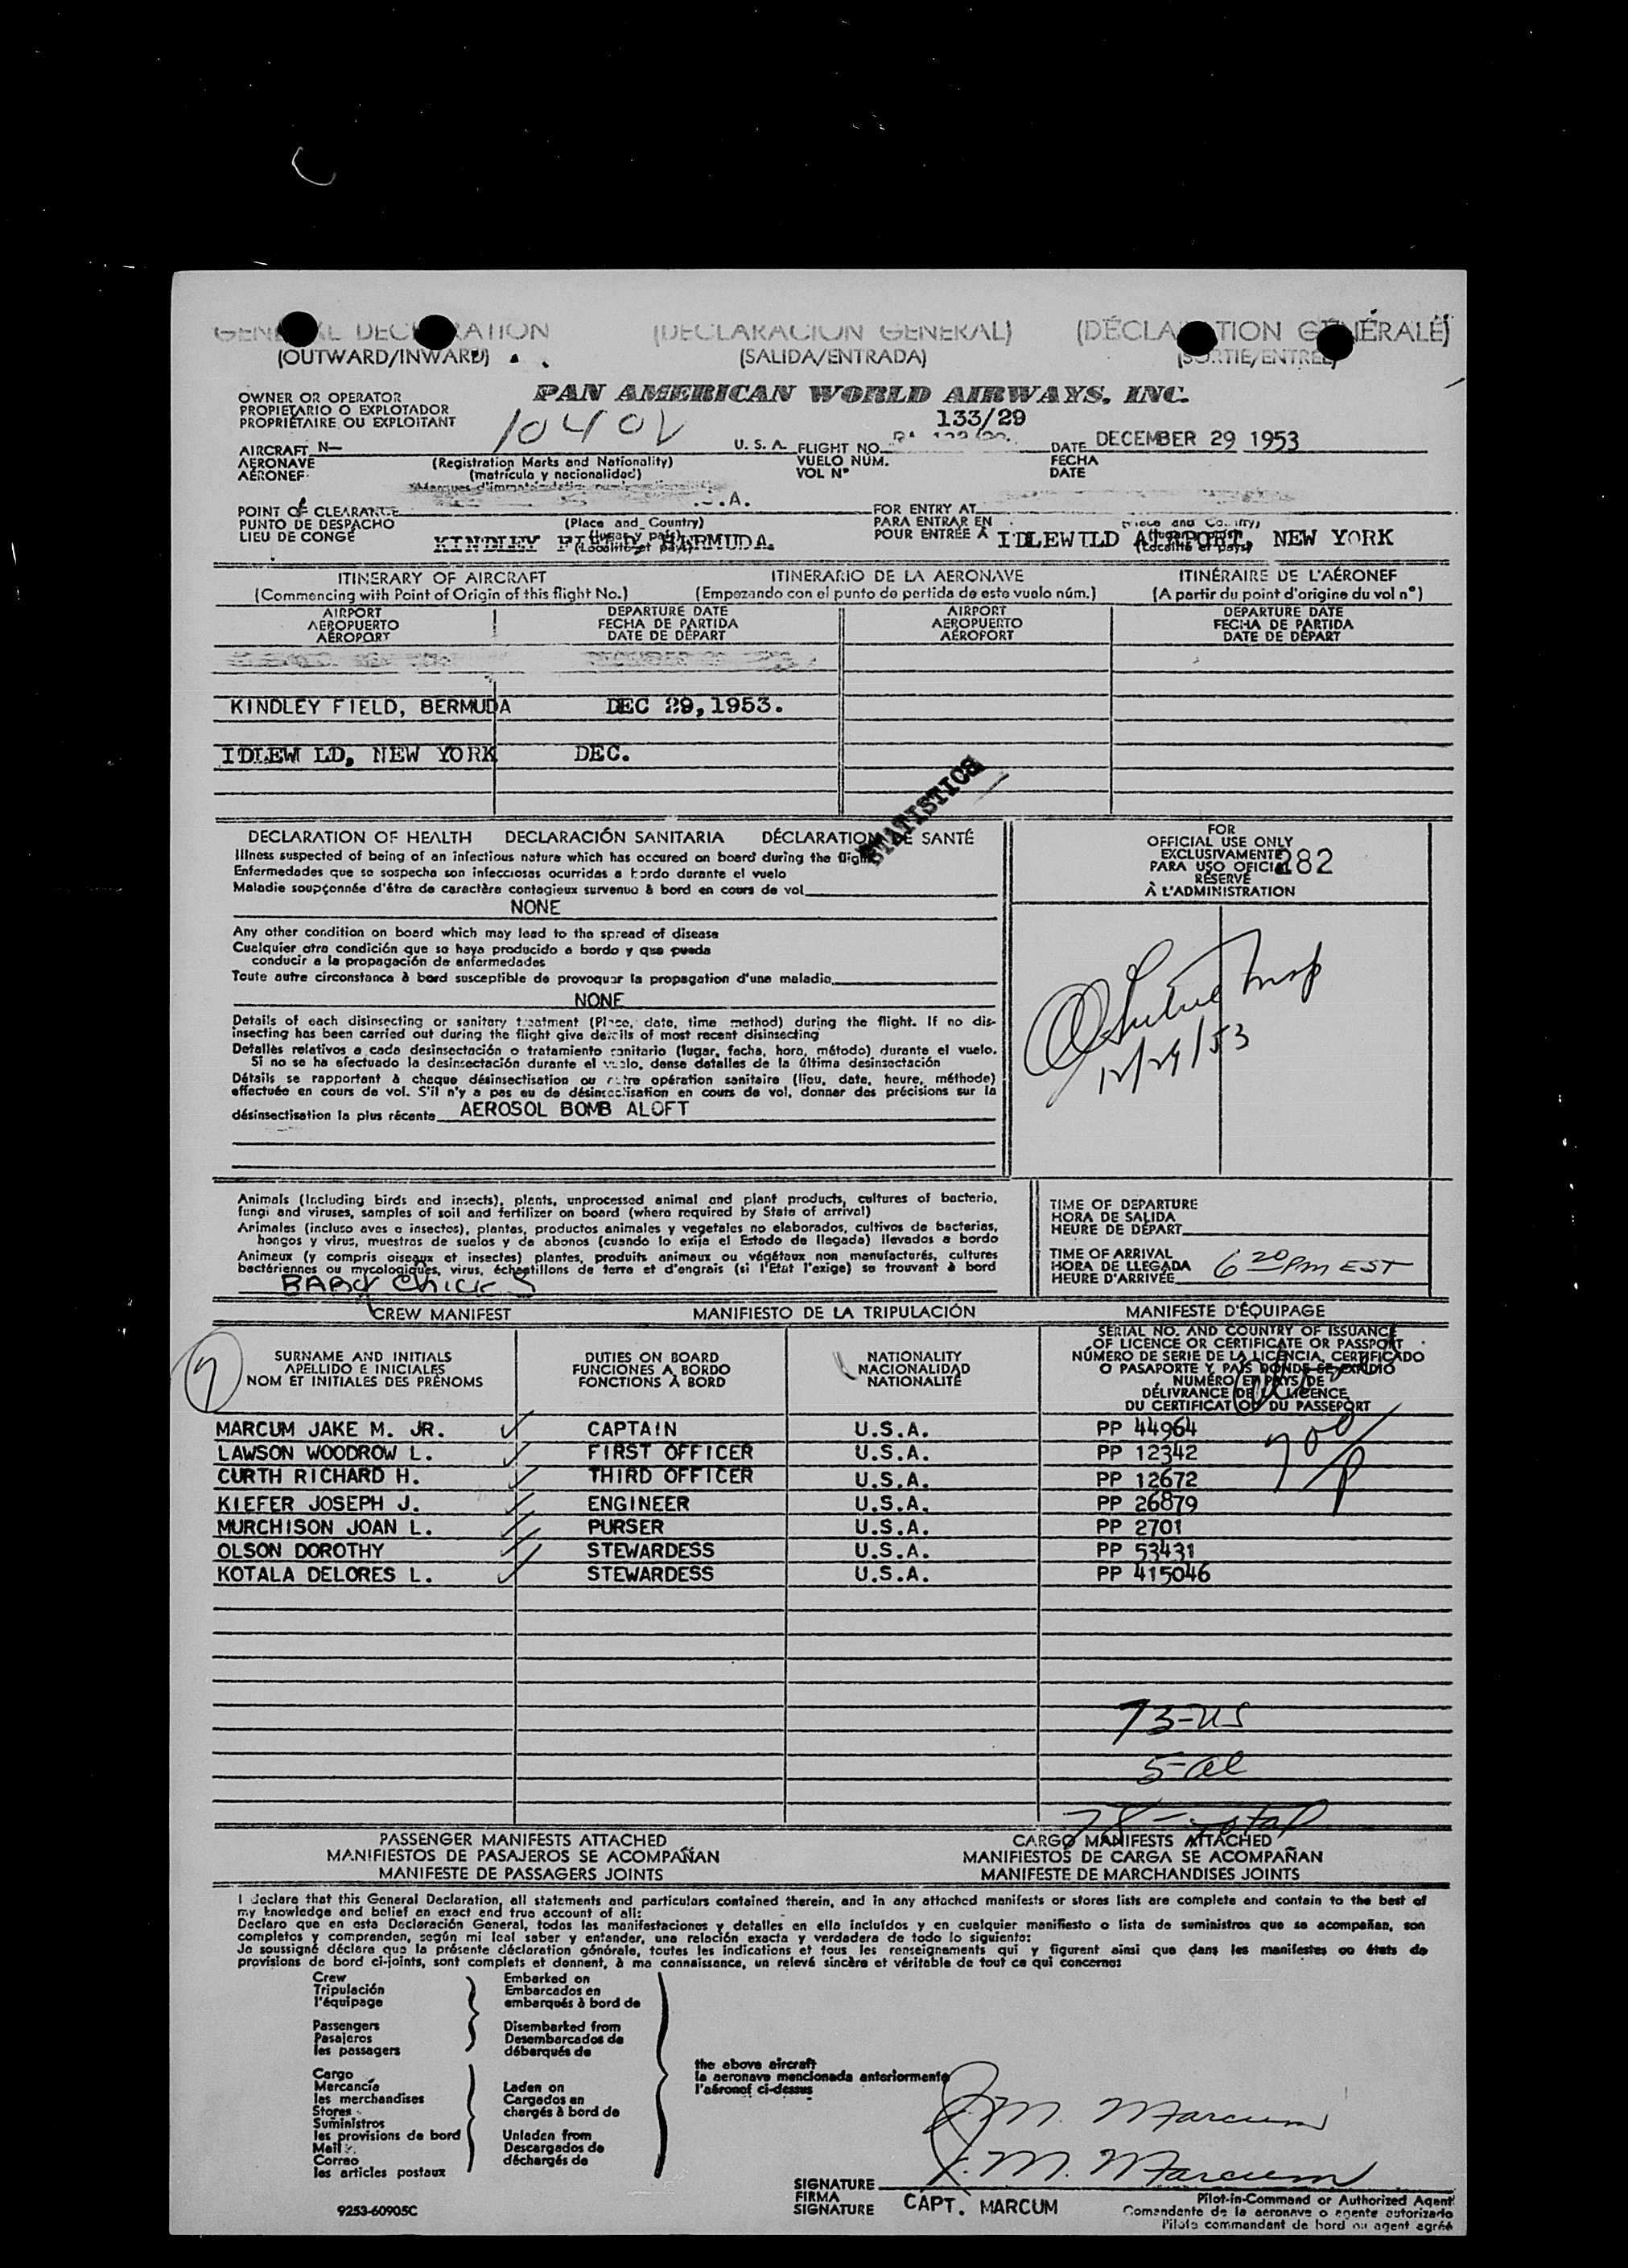 GENERAL DECLARATION (DECLARACIÓN GENERAL) (DÉCLARATION GÉNÉRALE)
(OUTWARD/INWARD) (SALIDA/ENTRADA) (SORTIE/ENTRÉE)
OWNER OR OPERATOR
PROPIETARIO O EXPLOTADOR
PROPRIÉTAIRE OU EXPLOITANT
PAN AMERICAN WORLD AIRWAYS, INC.
133/29
1040V
AIRCRAFT N— U. S. A. FLIGHT NO. DATE DECEMBER 29 1953
AERONAVE (Registration Marks and Nationality) VUELO NÚM. FECHA
AÉRONEF (matrícula y nacionalidad) VOL Nº DATE
POINT OF CLEARANCE FOR ENTRY AT
PUNTO DE DESPACHO (Place and Country) PARA ENTRAR EN (Place and Country)
LIEU DE CONGÉ KINDLEY FIELD, BERMUDA. POUR ENTRÉE À IDLEWILD AIRPORT, NEW YORK
ITINERARY OF AIRCRAFT ITINERARIO DE LA AERONAVE ITINÉRAIRE DE L'AÉRONEF
(Commencing with Point of Origin of this flight No.) (Empezando con el punto de partida de este vuelo núm.) (A partir du point d'origine du vol nº)
AIRPORT DEPARTURE DATE AIRPORT DEPARTURE DATE
AEROPUERTO FECHA DE PARTIDA AEROPUERTO FECHA DE PARTIDA
AÉROPORT DATE DE DÉPART AÉROPORT DATE DE DÉPART
KINDLEY FIELD, BERMUDA DEC 29,1953.
IDLEW LD, NEW YORK DEC.
STATISTICS
DECLARATION OF HEALTH DECLARACIÓN SANITARIA DÉCLARATION DE SANTÉ
Illness suspected of being of an infectious nature which has occured on board during the flight
Enfermedades que se sospecha son infecciosas ocurridas a bordo durante el vuelo
Maladie soupçonnée d'être de caractère contagieux survenue à bord en cours de vol
NONE
Any other condition on board which may lead to the spread of disease
Cualquier otra condición que se haya producido a bordo y que pueda
conducir a la propagación de enfermedades
Toute autre circonstance à bord susceptible de provoquer la propagation d'une maladie
NONE
Details of each disinsecting or sanitary treatment (Place, date, time method) during the flight. If no dis-
insecting has been carried out during the flight give details of most recent disinsecting
Detalles relativos a cada desinsectación o tratamiento sanitario (lugar, fecha, hora, método) durante el vuelo.
Si no se ha efectuado la desinsectación durante el vuelo, dense detalles de la última desinsectación
Détails se rapportant à chaque désinsectisation ou autre opération sanitaire (lieu, date, heure, méthode)
effectuée en cours de vol. S'il n'y a pas eu de désinsectisation en cours de vol, donner des précisions sur la
désinsectisation la plus récente AEROSOL BOMB ALOFT
FOR
OFFICIAL USE ONLY
EXCLUSIVAMENTE
PARA USO OFICIAL 282
RÉSERVÉ
À L'ADMINISTRATION
12/29/53
Animals (Including birds and insects), plants, unprocessed animal and plant products, cultures of bacteria,
fungi and viruses, samples of soil and fertilizer on board (where required by State of arrival)
Animales (incluso aves e insectos), plantas, productos animales y vegetales no elaborados, cultivos de bacterias,
hongos y virus, muestras de suelos y de abonos (cuando lo exija el Estado de llegada) llevados a bordo
Animaux (y compris oiseaux et insectes) plantes, produits animaux ou végétaux non manufacturés, cultures
bactériennes ou mycologiques, virus, échantillons de terre et d'engrais (si l'État l'exige) se trouvant à bord
BABY CHICKS
TIME OF DEPARTURE
HORA DE SALIDA
HEURE DE DÉPART
TIME OF ARRIVAL
HORA DE LLEGADA 6 20 PM EST
HEURE D'ARRIVÉE
CREW MANIFEST MANIFIESTO DE LA TRIPULACIÓN MANIFESTE D'ÉQUIPAGE
7
SURNAME AND INITIALS
APELLIDO E INICIALES
NOM ET INITIALES DES PRÉNOMS
DUTIES ON BOARD
FUNCIONES A BORDO
FONCTIONS À BORD
NATIONALITY
NACIONALIDAD
NATIONALITÉ
SERIAL NO. AND COUNTRY OF ISSUANCE
OF LICENCE OR CERTIFICATE OR PASSPORT
NÚMERO DE SERIE DE LA LICENCIA, CERTIFICADO
O PASAPORTE Y PAÍS DONDE SE EXPIDIÓ
NUMÉRO ET PAYS DE
DÉLIVRANCE DE LA LICENCE
DU CERTIFICAT OU DU PASSEPORT
MARCUM JAKE M. JR. CAPTAIN U.S.A. PP 44964
LAWSON WOODROW L. FIRST OFFICER U.S.A. PP 12342
CURTH RICHARD H. THIRD OFFICER U.S.A. PP 12672
KIEFER JOSEPH J. ENGINEER U.S.A. PP 26879
MURCHISON JOAN L. PURSER U.S.A. PP 2701
OLSON DOROTHY STEWARDESS U.S.A. PP 53431
KOTALA DELORES L. STEWARDESS U.S.A. PP 415046
700
73-US
5-al
78- total
PASSENGER MANIFESTS ATTACHED CARGO MANIFESTS ATTACHED
MANIFIESTOS DE PASAJEROS SE ACOMPAÑAN MANIFIESTOS DE CARGA SE ACOMPAÑAN
MANIFESTE DE PASSAGERS JOINTS MANIFESTE DE MARCHANDISES JOINTS
I declare that this General Declaration, all statements and particulars contained therein, and in any attached manifests or stores lists are complete and contain to the best of
my knowledge and belief an exact and true account of all:
Declaro que en esta Declaración General, todas las manifestaciones y detalles en ella incluídos y en cualquier manifiesto o lista de suministros que se acompañan, son
completos y comprenden, según mi leal saber y entender, una relación exacta y verdadera de todo lo siguiente:
Je soussigné déclare que la présente déclaration générale, toutes les indications et tous les renseignements qui y figurent ainsi que dans les manifestes ou états de
provisions de bord ci-joints, sont complets et donnent, à ma connaissance, un relevé sincère et véritable de tout ce qui concerne:
Crew Embarked on
Tripulación Embarcados en
l'équipage embarqués à bord de
Passengers Disembarked from
Pasajeros Desembarcados de
les passagers débarqués de
the above aircraft
la aeronave mencionada anteriormente
l'aéronef ci-dessus
Cargo
Mercancía Laden on
les merchandises Cargados en
Stores chargés à bord de
Suministros
les provisions de bord Unladen from
Mail Descargados de
Correo déchargés de
les articles postaux
J. M. Marcum
J. M. Marcum
SIGNATURE
FIRMA
SIGNATURE CAPT. MARCUM
Pilot-in-Command or Authorized Agent
Comandante de la aeronave o agente autorizado
Pilote commandant de bord ou agent agréé
9253-60905C